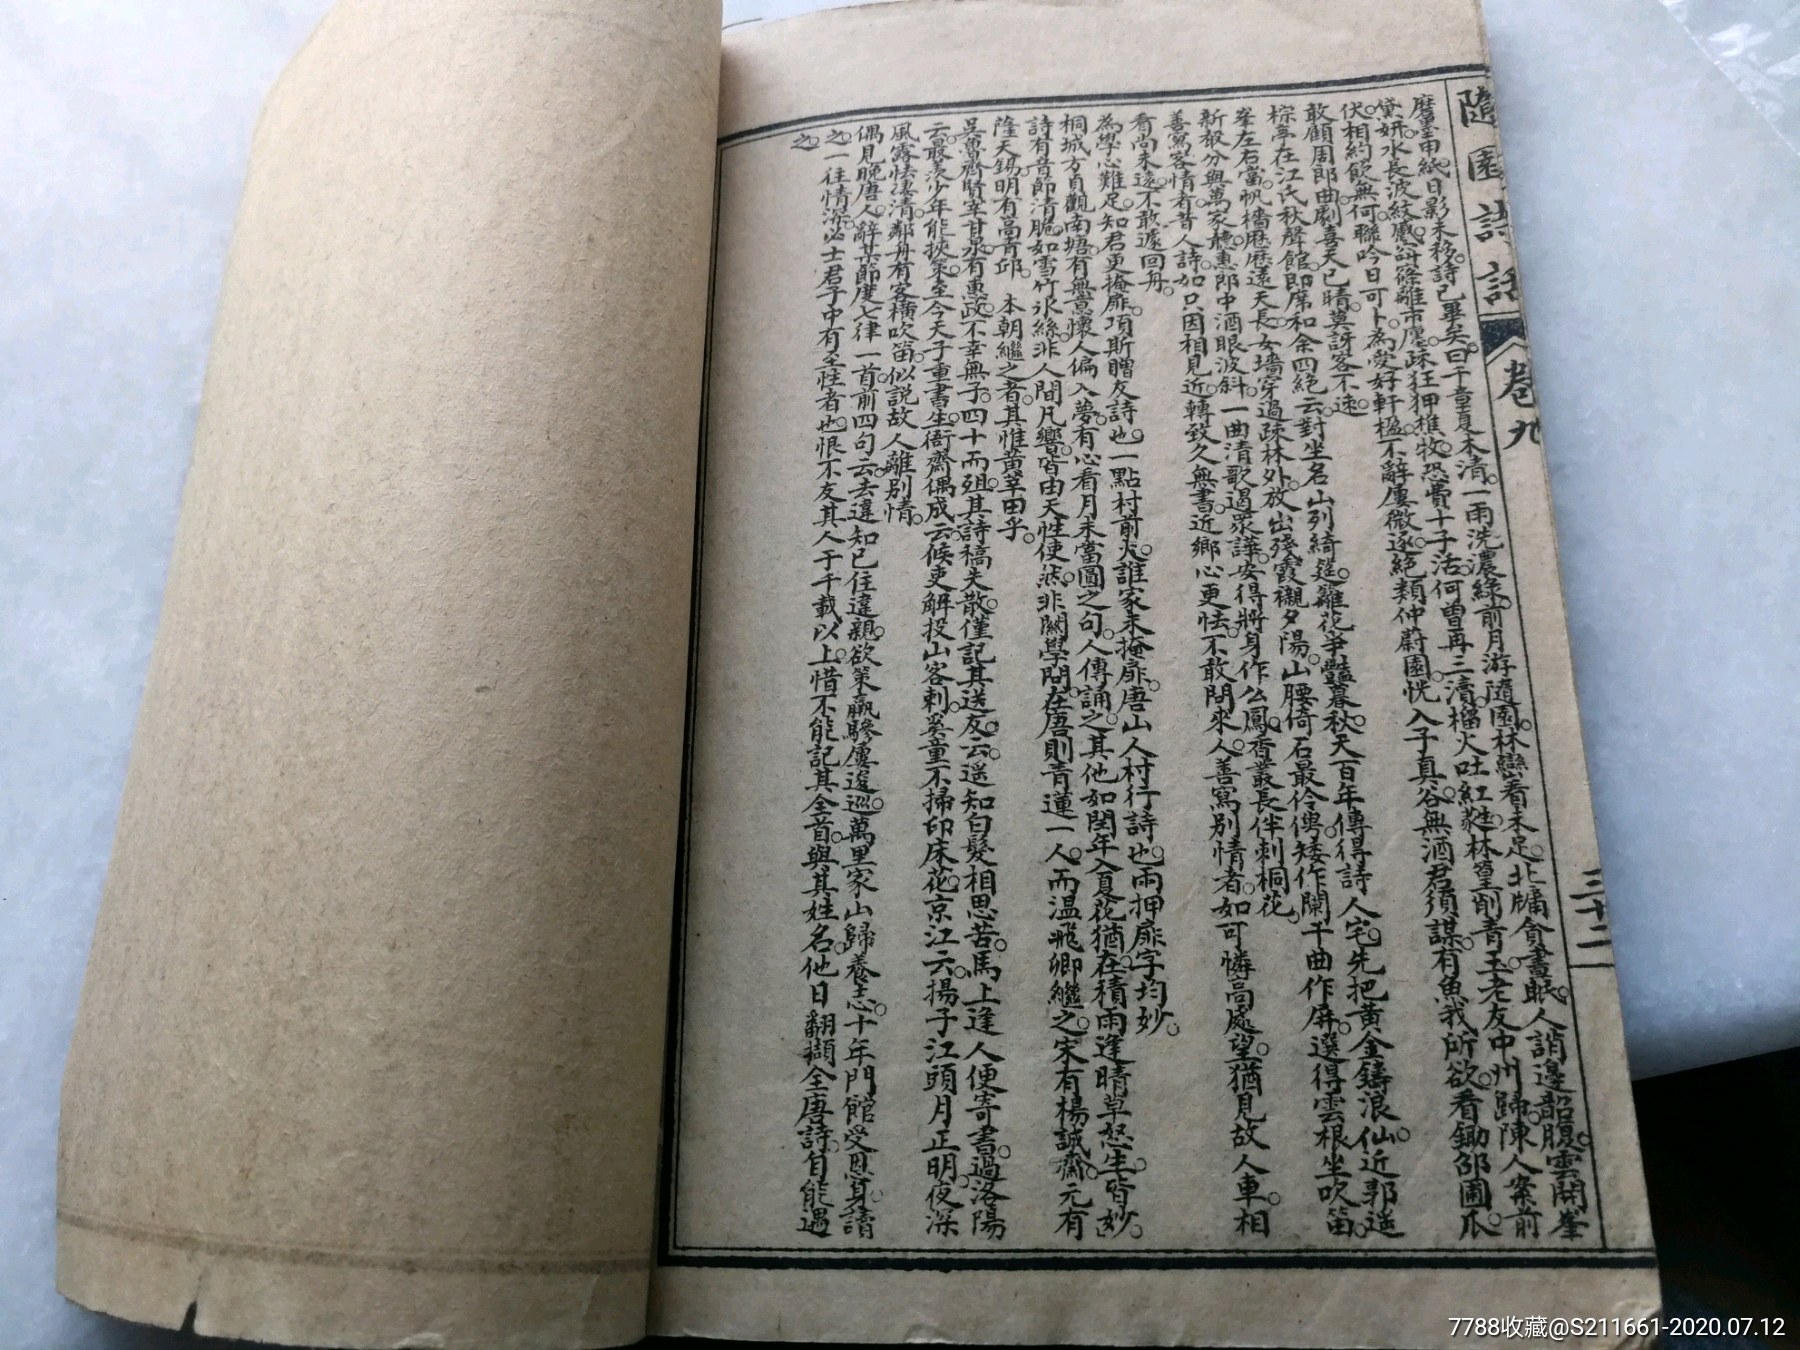 隨園詩話 卷九 三十二
磨墨申紙日影未移詩已畢矣曰千章夏木清一雨洗濃綠前月游隨園林巒看未足北牖貪晝眠人誚邊韶腹雲開峯
黛妍水長波紋蹙
伏相約飲無何聯吟日可卜為愛好軒楹不辭屢微逐絕類仲蔚園恍入子真谷無酒君須謀有魚我所欲看鋤邵圃瓜
敢顧周郎曲劇喜天已晴莫訝客不速
棕亭在江氏秋聲館即席和余四絕云對坐名山列綺筵籬花爭豔暮秋天百年傳得詩人宅先把黃金鑄浪仙近郭遥
峯左右當帆檣歷歷遠天長女墻穿過疎林外放出殘霞襯夕陽山腰倚石最伶俜矮作闌干曲作屏選得雲根坐吹笛
新聲分與萬家聽惠郎中酒眼波斜一曲清歌遏眾譁安得將身作么鳳香叢長伴刺桐花
善寫客情有昔人詩如只因相見近轉致久無書近鄉心更怯不敢問來人善寫別情者如可憐高處望猶見故人車相
看尚未遠不敢遽回舟
為學心難足知君更掩扉項斯贈友詩也一點村前火誰家未掩扉唐山人村行詩也兩押扉字均妙
桐城方貞觀南塘有無意懷人偏入夢有心看月未當圓之句人傳誦之其他如閏年入夏花猶在積雨逢晴草怒生皆妙
詩有音節清脆如雪竹冰絲非人間凡響皆由天性使然非關學問在唐則青蓮一人而温飛卿繼之宋有楊誠齋元有
隆天錫明有高青邱 本朝繼之者其惟黃莘田乎
吳魯齋賢宰甘泉有惠政不幸無子四十而殂其詩稿失散僅記其送友云遥知白髮相思苦馬上逢人便寄書過洛陽
云最羨少年能挾策至今天子重書生衙齋偶成云候吏解投山客刺奚童不掃印床花京江云揚子江頭月正明夜深
風露怯淒清鄰舟有客橫吹笛似說故人離別情
偶見晚唐人辭某節度七律一首前四句云去違知已住違親欲策羸驂屢逡巡萬里家山歸養志十年門館受恩身讀
之一往情深必士君子中有至性者也恨不友其人于千載以上惜不能記其全首與其姓名他日翻擷全唐詩自能遇
之
7788收藏@S211661-2020.07.12